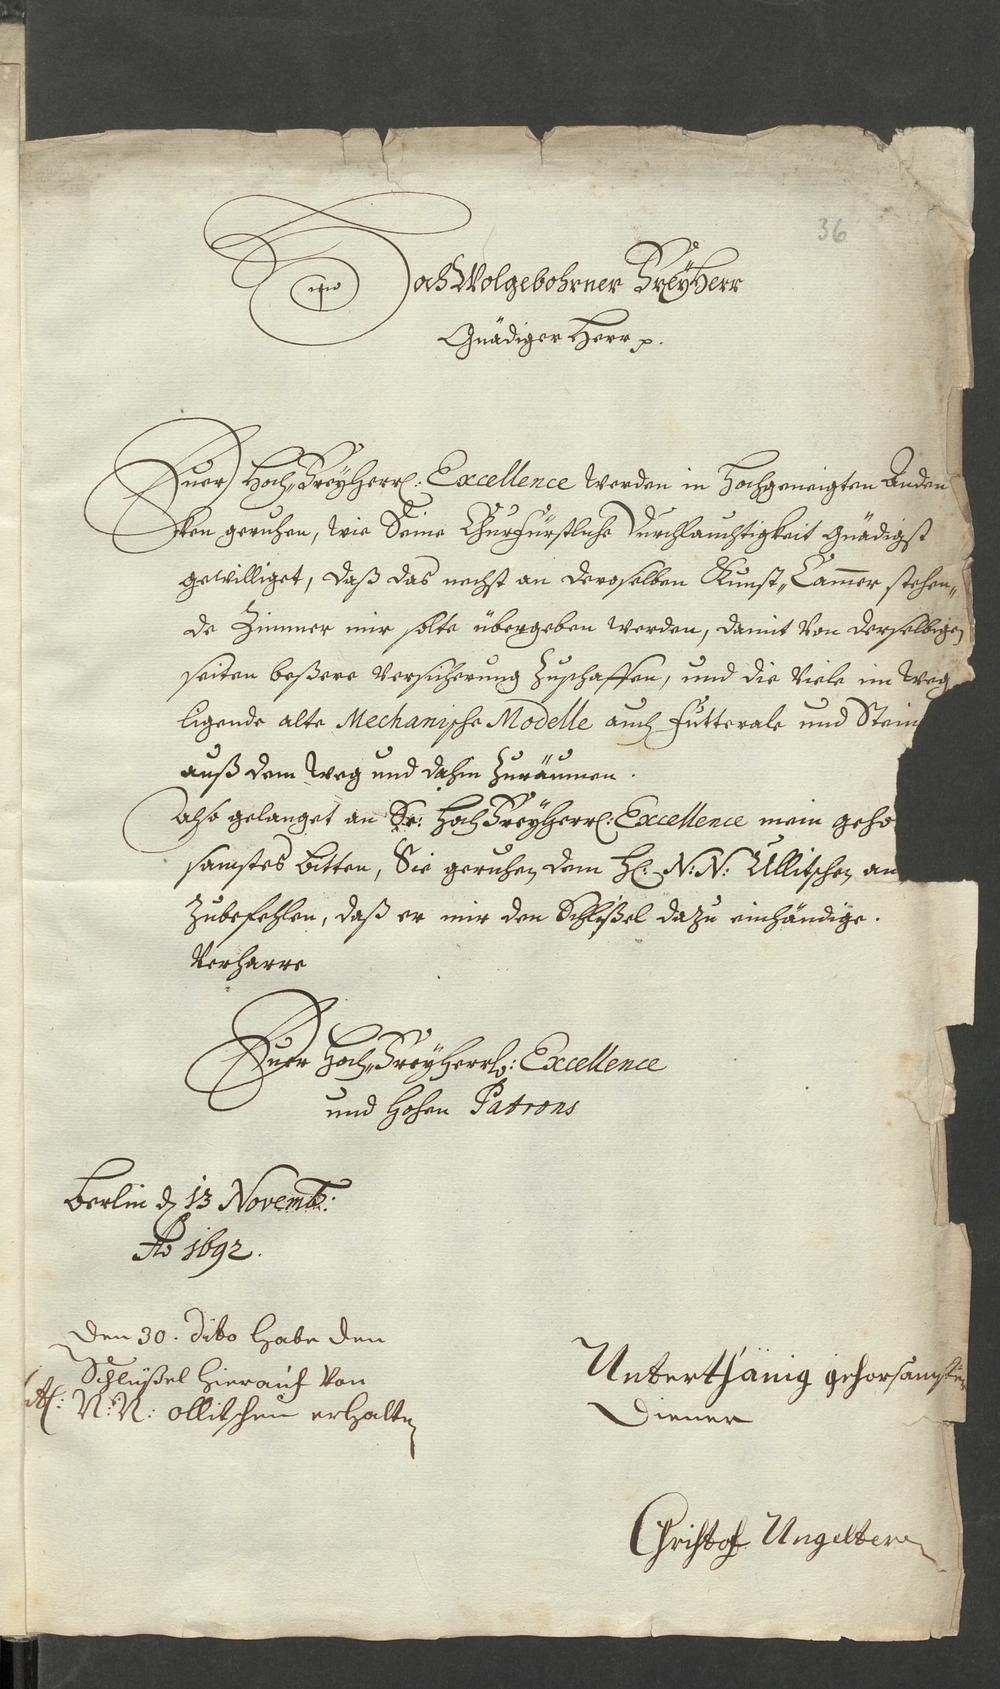 36
HochWolgebohrner FreyHerr
Gnädiger Herr p.
Euer Hoch„FreyHerrl: Excellence werden in hochgeneigten Anden
cken geruhen, wie Seine Churfürstliche Durchlauchtigkeit gnädigst
gewilliget, daß das nechst an deroselben Kunst„Cam̄er stehen„
de Zimmer mir solte übergeben werden, damit von derselbigen
seiten beßere versicherung zuschaffen, und die viele im weg
ligende alte Mechanische Modelle auch Futterale und Stein
auß dem weg und dahin zuräumen.
Also gelanget an Se: HochFreyHerrl: Excellence mein geho
samstes bitten, Sie geruhen dem H: N: N: Ullitschen an
zubefehlen, daß er mir den Schlißel dazu einhändige.
Verharre
Euer Hoch„FreyHerrl: Excellence
und hohen Patrons
Berlin d 13 Novemb:
Ao 1692.
Den 30. dito habe den
Schlüßel hierauf von
H: N: N: ollitschen erhalten
Unterthänig gehorsamster
Diener
Christof Ungelter